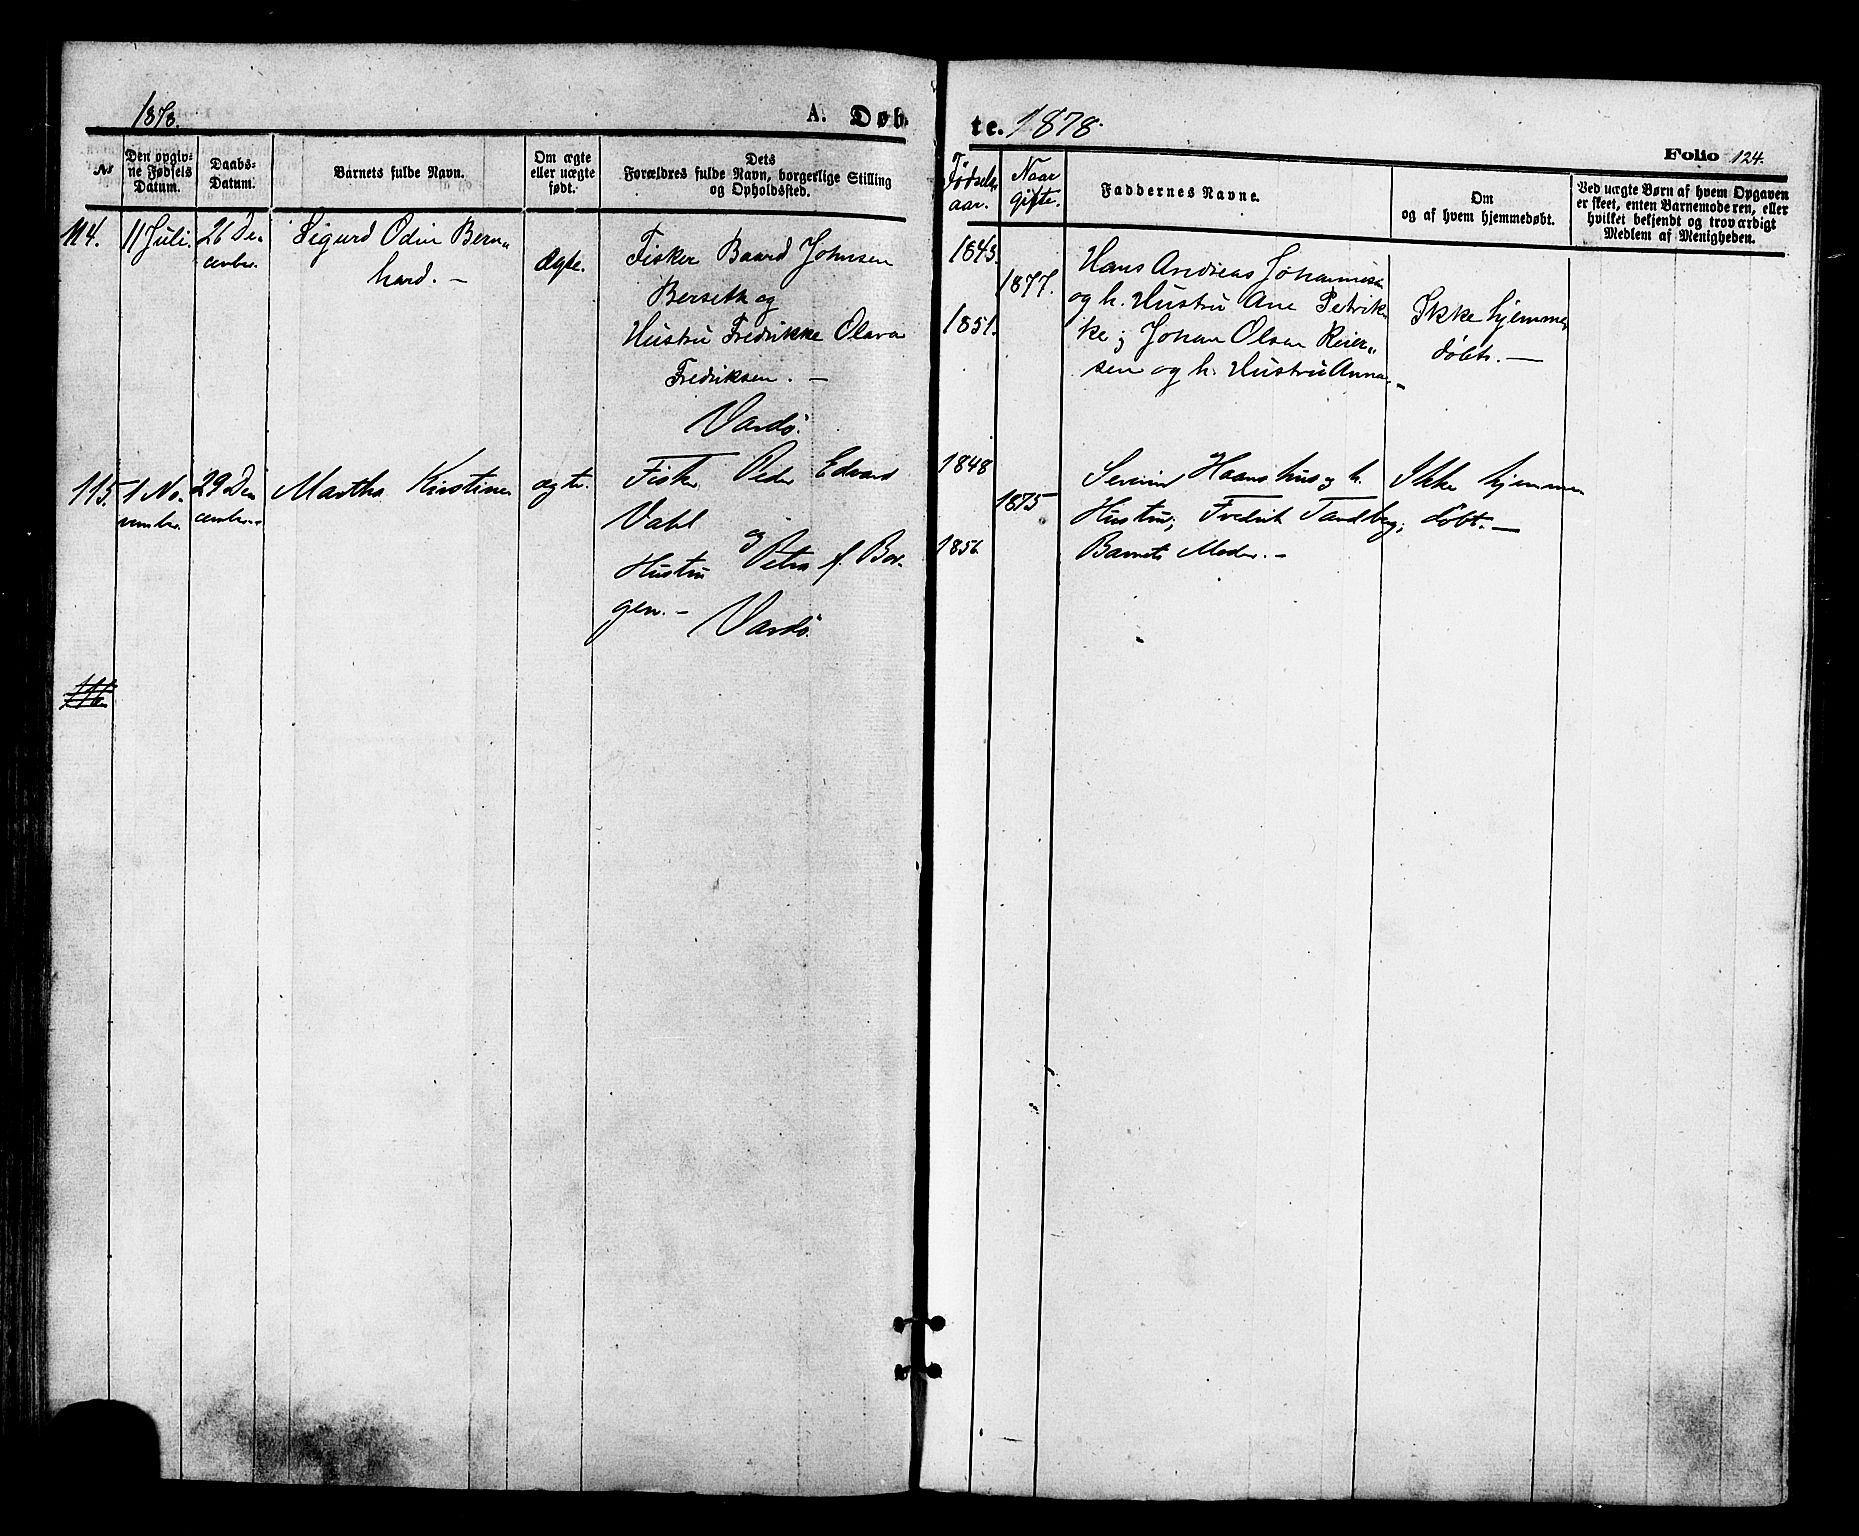 1878.
A. Døb
te. 1878.
Folio 124.
№
Den opgiv-
ne Fødsels
Datum.
Daabs-
Datum.
Barnets fulde Navn.
Om ægte
eller uægte
født.
Dets
Forældres fulde Navn, borgerlige Stilling
og Opholdssted.
Fødsels
aar.
Naar
gifte.
Faddernes Navne.
Om
og af hvem hjemmedøbt.
Ved uægte Børn af hvem Opgaven
er skeet, enten Barnemoderen, eller
hvilket bekjendt og troværdigt
Medlem af Menigheden.
114.
11 Juli.
26 De-
cember.
Sigurd Odin Bern„
hard. —
Ægte.
Fisker Baard Johnsen
Berseth og
Hustru Fredrikke Olava
Fredriksen. —
Vardö.
1843.
1877.
1851.
Hans Andreas Johannesen
og h. Hustru Ane Petrik-
ke; Johan Olsen Reier„
sen og h. Hustru Anna. —
Ikke hjemme
döbt. —
115.
1 No-
vember.
29 De
cember.
Martha Kirstine
ægte.
Fisker Peder Edvard
Vahl og
Hustru Petra f. Bor-
gen. —
Vardö.
1848
1875
1856
Severin Haanshus og h.
Hustru; Fredrik Tandberg;
Barnets Moder. —
Ikke hjemme
döbt. —
116